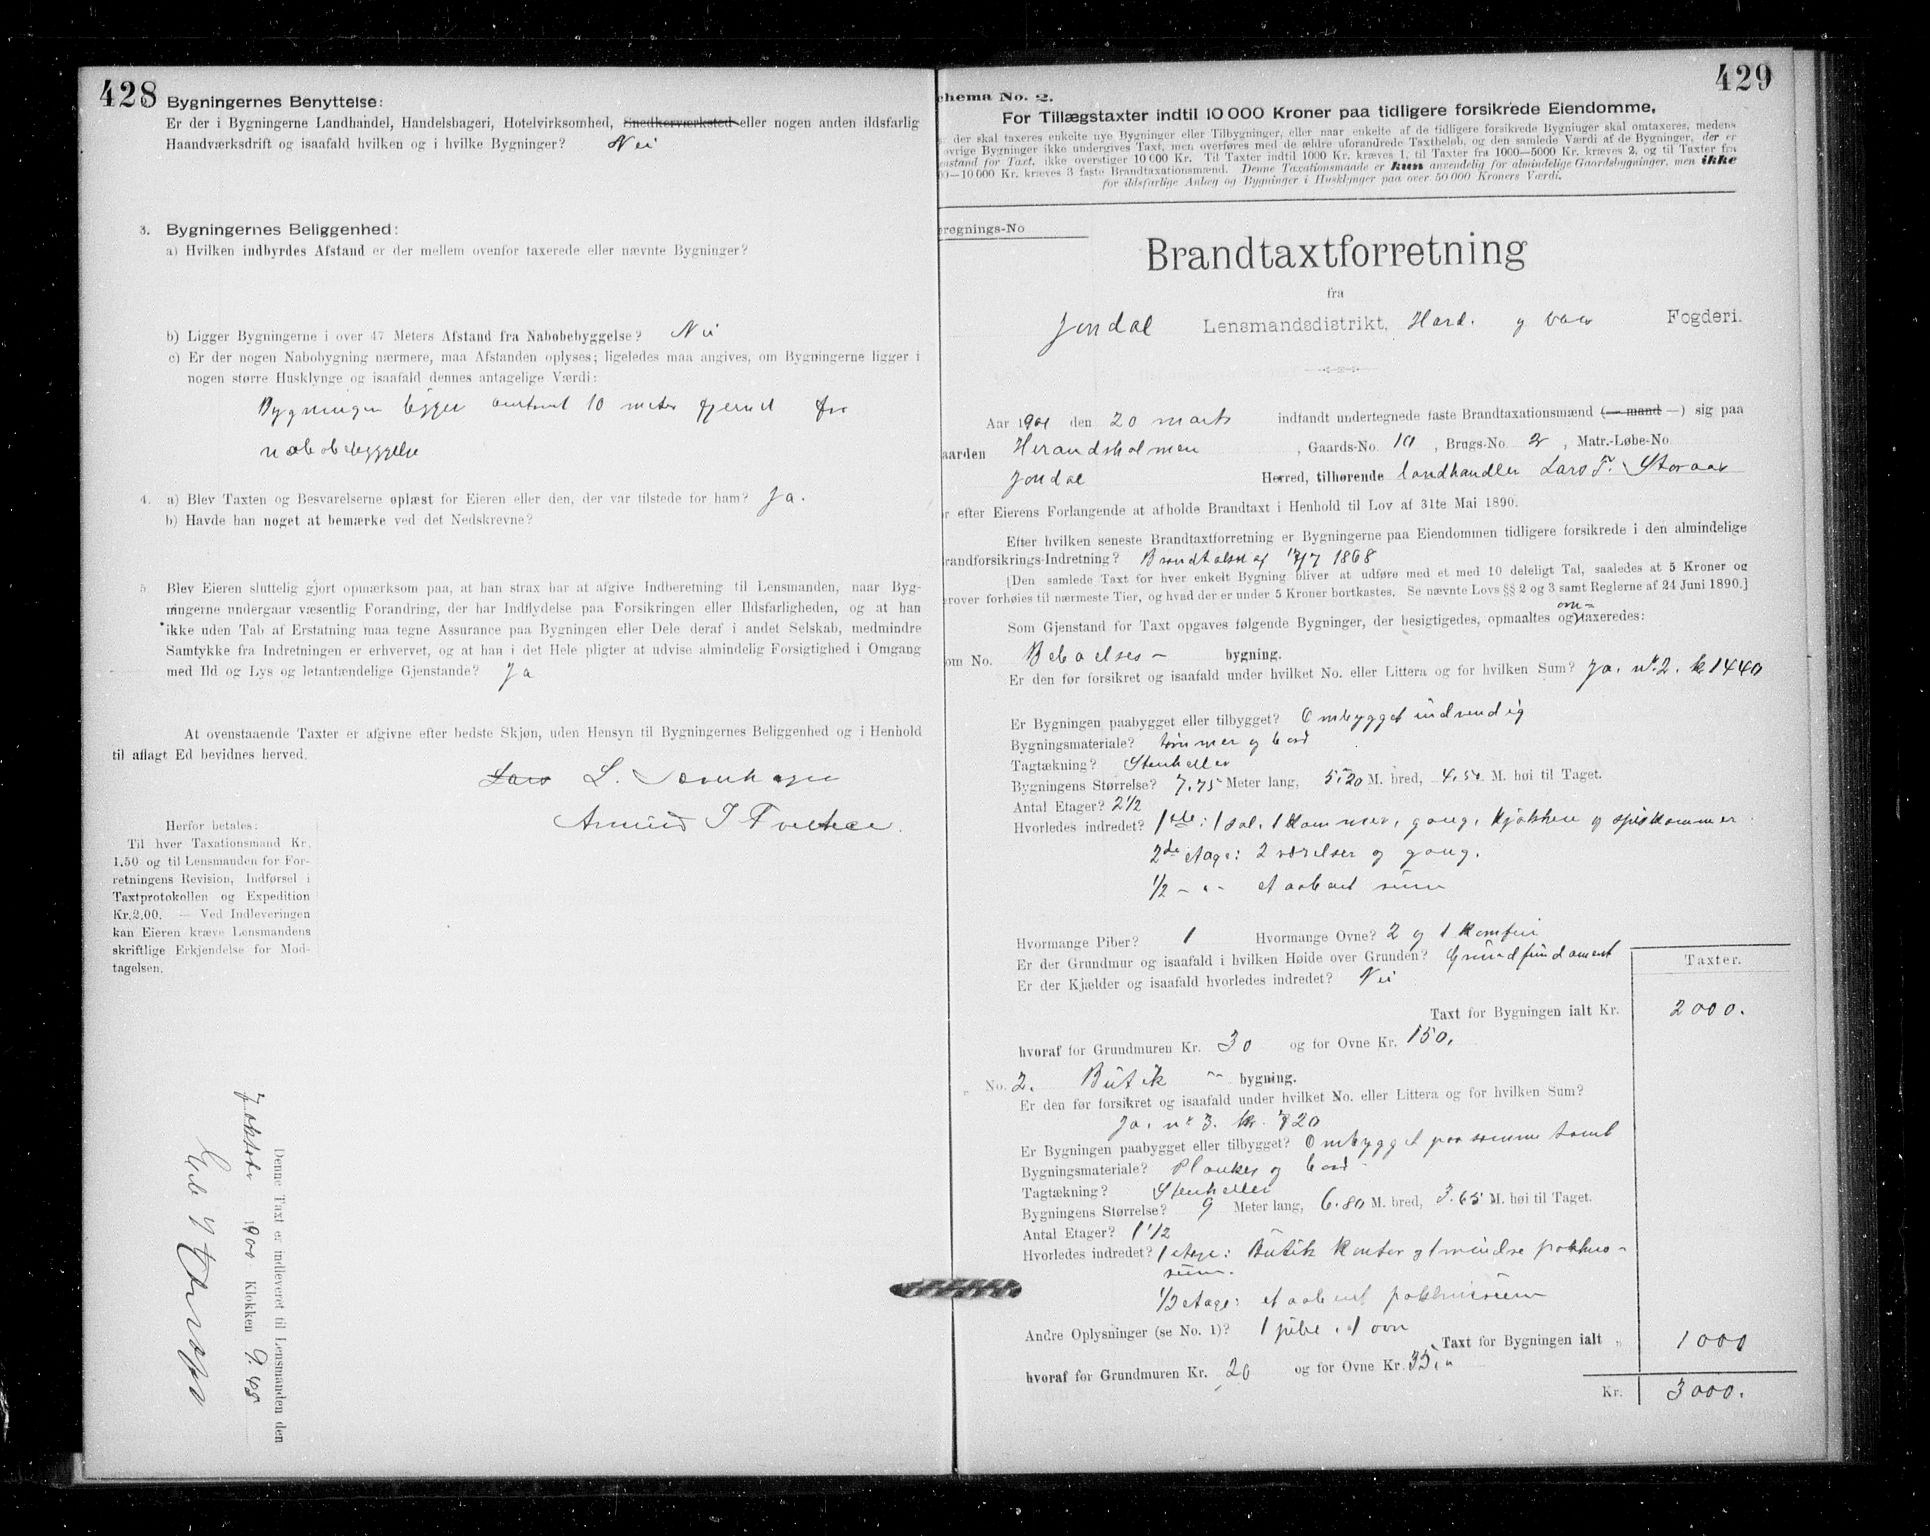 428
Bygningernes Benyttelse:
Er der i Bygningerne Landhandel, Handelsbageri, Hotelvirksomhed, Snedkerværksted eller nogen anden ildsfarlig
Haandværksdrift og isaafald hvilken og i hvilke Bygninger? Nei
3. Bygningernes Beliggenhed:
a) Hvilken indbyrdes Afstand er der mellem ovenfor taxerede eller nævnte Bygninger?
b) Ligger Bygningerne i over 47 Meters Afstand fra Nabobebyggelse? Nei
c) Er der nogen Nabobygning nærmere, maa Afstanden oplyses; ligeledes maa angives, om Bygningerne ligger i
nogen større Husklynge og isaafald dennes antagelige Værdi:
Bygningen ligger omtrent 10 meter fjernet fra
nabobebyggelse
4. a) Blev Taxten og Besvarelserne oplæst for Eieren eller den, der var tilstede for ham? Ja.
b) Havde han noget at bemærke ved det Nedskrevne?
5. Blev Eieren sluttelig gjort opmærksom paa, at han strax har at afgive Indberetning til Lensmanden, naar Byg-
ningerne undergaar væsentlig Forandring, der har Indflydelse paa Forsikringen eller Ildsfarligheden, og at han
ikke uden Tab af Erstatning maa tegne Assurance paa Bygningen eller Dele deraf i andet Selskab, medmindre
Samtykke fra Indretningen er erhvervet, og at han i det Hele pligter at udvise almindelig Forsigtighed i Omgang
med Ild og Lys og letantændelige Gjenstande? Ja
At ovenstaaende Taxter er afgivne efter bedste Skjøn, uden Hensyn til Bygningernes Beliggenhed og i Henhold
til aflagt Ed bevidnes herved.
Lars L.
Herfor betales:
Til hver Taxationsmand Kr.
1.50 og til Lensmanden for For-
retningens Revision, Indførsel i
Taxtprotokollen og Expedition
Kr. 2.00. — Ved Indleveringen
kan Eieren kræve Lensmandens
skriftlige Erkjendelse for Mod-
tagelsen.
Denne Taxt er indleveret til Lensmanden den
7 oktober 1900 Klokken 9.45
429
chema No. 2.
For Tillægstaxter indtil 10 000 Kroner paa tidligere forsikrede Eiendomme,
der skal taxeres enkelte nye Bygninger eller Tilbygninger, eller naar enkelte af de tidligere forsikrede Bygninger skal omtaxeres, medens
øvrige Bygninger ikke undergives Taxt, men overføres med de ældre uforandrede Taxtbeløb, og den samlede Værdi af de Bygninger, der er
enstand for Taxt, ikke overstiger 10 000 Kr. Til Taxter indtil 1000 Kr. kræves 1, til Taxter fra 1000—5000 Kr. kræves 2, og til Taxter fra
00—10 000 Kr. kræves 3 faste Brandtaxationsmænd. Denne Taxationsmaade er kun anvendelig for almindelige Gaardsbygninger, men ikke
for ildsfarlige Anlæg og Bygninger i Husklynger paa over 50 000 Kroners Værdi.
eregnings-No
Brandtaxtforretning
fra
Jondal Lensmandsdistrikt, Hard. og Voss Fogderi.
Aar 1901 den 20 marts indfandt undertegnede faste Brandtaxationsmænd (— mand —) sig paa
aarden Herandsholmen, Gaards-No. 10, Brugs-No. 2, Matr.-Løbe-No
Jondal Herred, tilhørende landhandler Lars T. Storaas
r efter Eierens Forlangende at afholde Brandtaxt i Henhold til Lov af 31te Mai 1890.
Efter hvilken seneste Brandtaxtforretning er Bygningerne paa Eiendommen tidligere forsikrede i den almindelige
randforsikrings-Indretning? 1868
[Den samlede Taxt for hver enkelt Bygning bliver at udføre med et med 10 deleligt Tal, saaledes at 5 Kroner og
erover forhøies til nærmeste Tier, og hvad der er under 5 Kroner bortkastes. Se nævnte Lovs §§ 2 og 3 samt Reglerne af 24 Juni 1890.]
Som Gjenstand for Taxt opgaves følgende Bygninger, der besigtigedes, opmaaltes og om-taxeredes:
om No. Beboelses- bygning.
Er den før forsikret og isaafald under hvilket No. eller Littera og for hvilken Sum? Ja. No. 2. kr 1440
Er Bygningen paabygget eller tilbygget? Ombygget indvendig
Bygningsmateriale? tømmer og bord
Tagtækning? Stenheller
Bygningens Størrelse? 7.75 Meter lang, 5.20 M. bred, 4.50 M. høi til Taget.
Antal Etager? 2 1/2
Hvorledes indredet? 1ste: 1 sal, 1 kammer, gang, kjøkken og spiskammer
2de etage: 2 værelser og gang.
1/2 - " - et aabent rum
Hvormange Piber? 1 Hvormange Ovne? 2 og 1 komfur
Er der Grundmur og isaafald i hvilken Høide over Grunden? Grundfundament
Er der Kjælder og isaafald hvorledes indredet? Nei
Taxter.
Taxt for Bygningen ialt Kr. 2000.
hvoraf for Grundmuren Kr. 30 og for Ovne Kr. 150.
No. 2. Butik - bygning.
Er den før forsikret og isaafald under hvilket No. eller Littera og for hvilken Sum?
Ja. No 3. kr. 720
Er Bygningen paabygget eller tilbygget? Ombygget paa samme tomt
Bygningsmateriale? Planker og bord
Tagtækning? Stenheller
Bygningens Størrelse? 9 Meter lang, 6.80 M. bred, 3.65 M. høi til Taget.
Antal Etager? 1 1/2
Hvorledes indredet? 1 etage: Butik kontor og 1 mindre pakhus-
rum.
1/2 etage: et aabent pakhusrum
Andre Oplysninger (se No. 1)? 1 pibe, 1 ovn
Taxt for Bygningen ialt „ 1000
hvoraf for Grundmuren Kr. 20 og for Ovne Kr. 35,
Kr. 3000.